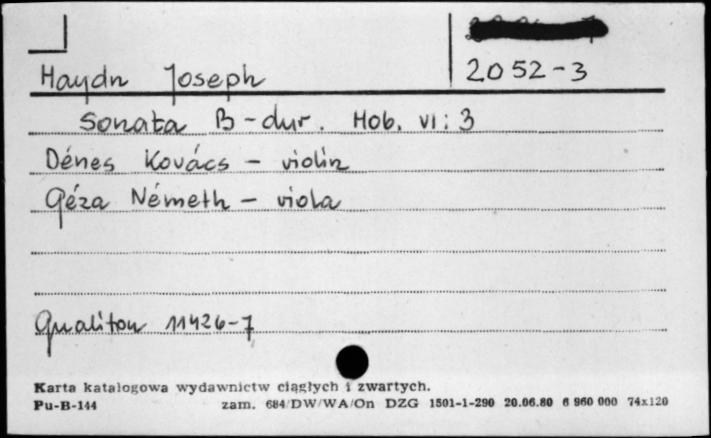 2052-3
Haydn Joseph
Sonata B-dur. Hob. VI: 3
Dénes Kovács - violin
Géza Németh - viola
Qualiton 11426-7
Karta katalogowa wydawnictw ciągłych i zwartych.
Pu-B-144 zam. 684/DW/WA/On DZG 1501-1-290 20.06.80 6 960 000 74x120